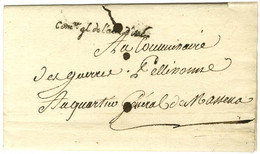 Comre gl de l'armée d'
Au Commissaire
des guerres Pellissonne
Au quartier Général de Massena